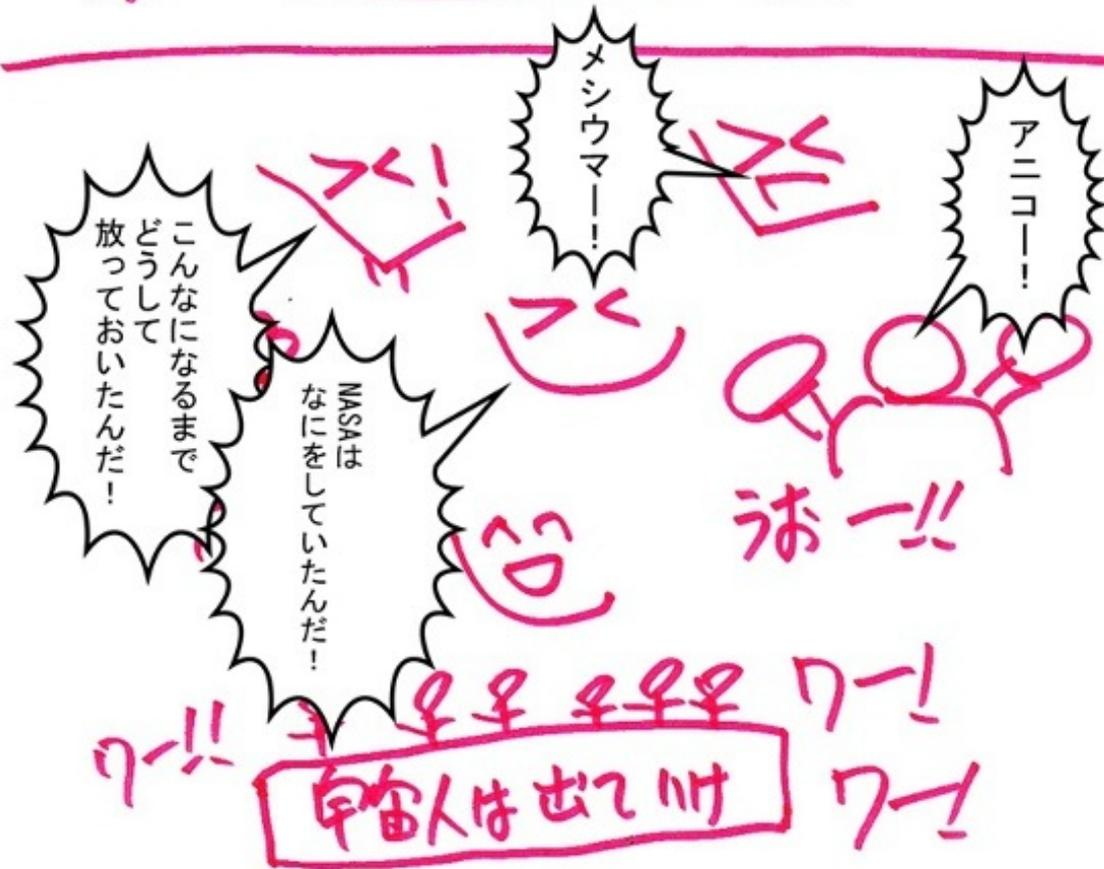 アニコー！
メシウマー！
こんなになるまで
どうして
放っておいたんだ！
NASAは
なにをしていたんだ！
うおー!!
ワー!
ワー!!
ワー!
宇宙人は出ていけ